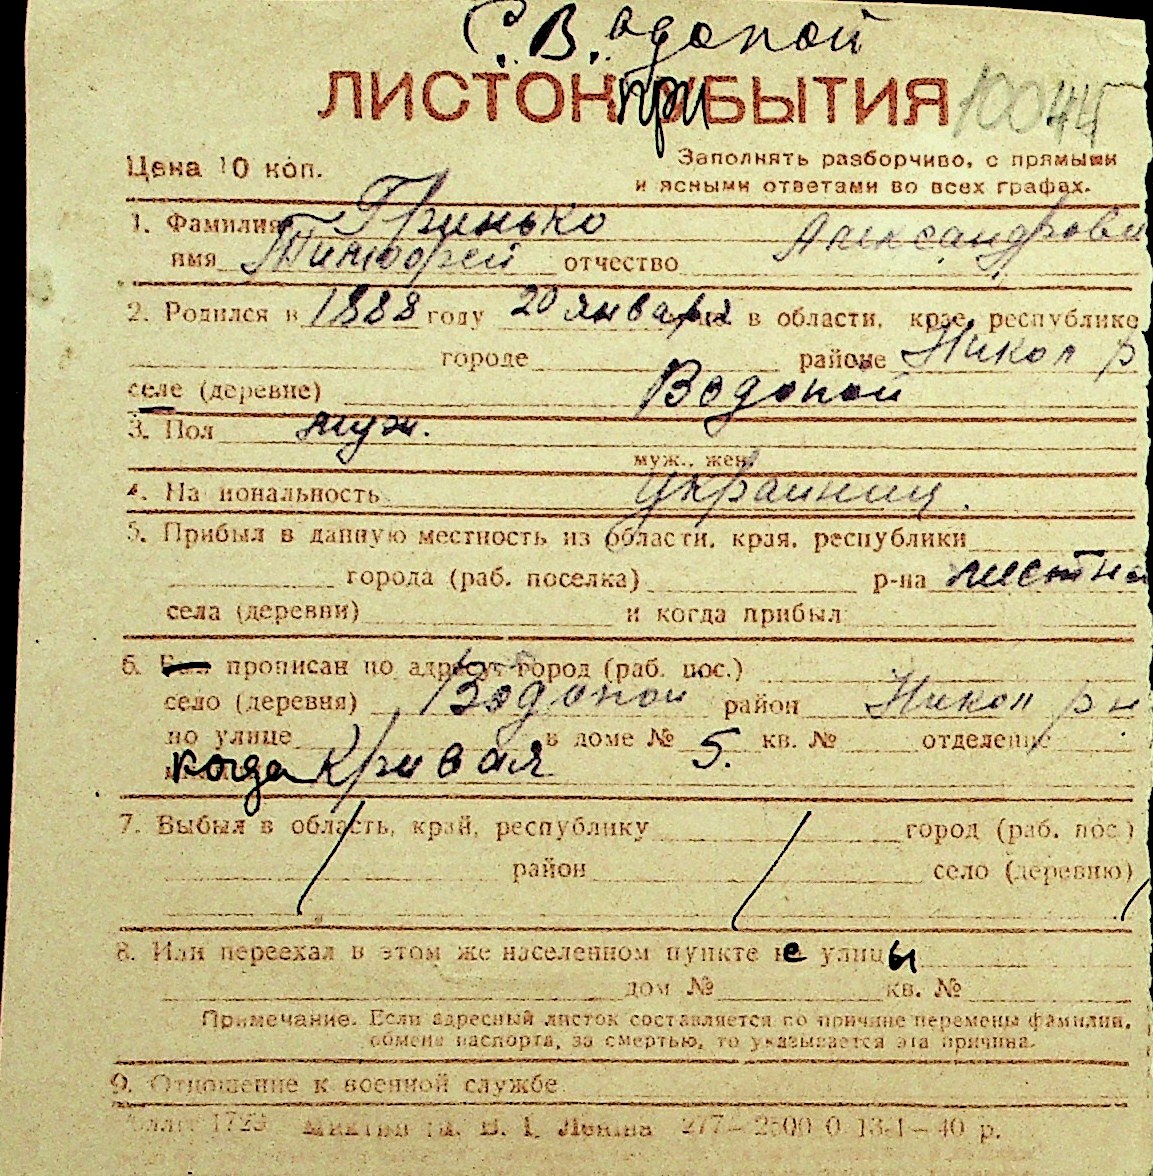 С. Водопой
ЛИСТОК прибытия 10044
Цена 10 коп. Заполнять разборчиво, с прямыми
и ясными ответами во всех графах.
1. Фамилия Гринько
имя Тимофей отчество Александрови
2. Родился в 1888 году 20 января в области, крае, республике
городе районе Никол р
селе (деревне) Водопой
3. Пол муж.
муж., жен.
4. На иональность украинец.
5. Прибыл в данную местность из области, края, республики
города (раб. поселка) р-на местн
села (деревни) и когда прибыл
6. прописан по адресу: город (раб. пос.)
село (деревня) Водопой район Никол р н
по улице в доме № 5. кв. № отделение
когда Кривая
7. Выбыл в область, край, республику город (раб. пос.)
район село (деревню)
8. Или переехал в этом же населенном пункте не улицы
дом № кв. №
Примечание. Если адресный листок составляется по причине перемены фамилии,
обмена паспорта, за смертью, то указывается эта причина.
9. Отношение к военной службе
1723 В. І. Леніна 277—2500 0 13-І—40 р.